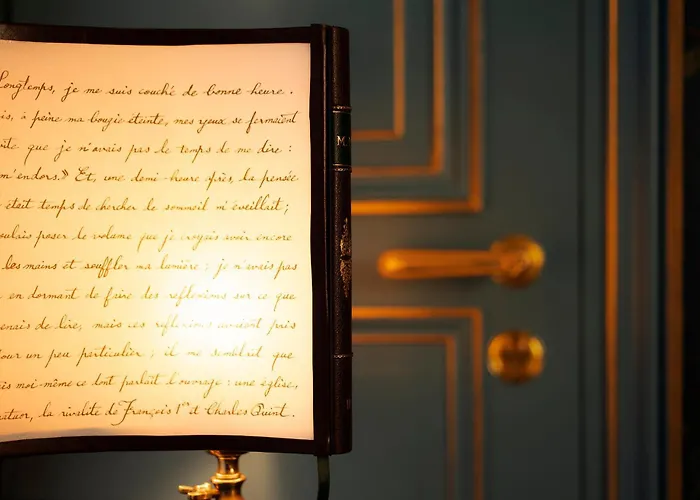 Longtemps, je me suis couché de bonne heure.
is, à peine ma bougie éteinte, mes yeux se fermaient
ite que je n'avais pas le temps de me dire :
m'endors.» Et, une demi-heure après, la pensée
était temps de chercher le sommeil m'éveillait ;
oulais poser le volume que je croyais avoir encore
les mains et souffler ma lumière ; je n'avais pas
en dormant de faire des réflexions sur ce que
enais de lire, mais ces réflexions avaient pris
our un peu particulier ; il me semblait que
ais moi-même ce dont parlait l'ouvrage : une église,
uatuor, la rivalité de François 1er et Charles Quint.
M.